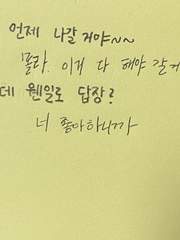 언제 나갈 거야~~
몰라. 이게 다 해야 갈거
데 웬일로 답장?
너 좋아하니까